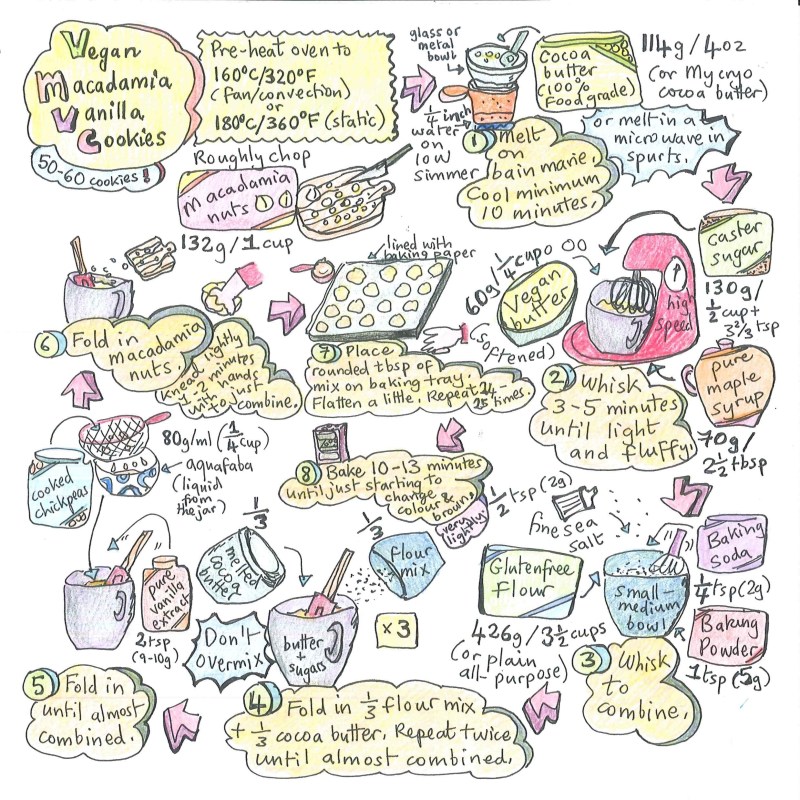 Vegan
Macadamia
Vanilla
Cookies
50-60 cookies!
Pre-heat oven to
160°C/320°F
(fan/convection)
or
180°C/360°F (static)
glass or
metal
bowl
1/4 inch
water
on
low
simmer
Cocoa
butter
(100%
Food grade)
114g/4oz
(or Mycryo
cocoa butter)
1 Melt
on
bain marie.
Cool minimum
10 minutes.
or melt in a
microwave in
spurts.
caster
sugar
130g/
1/2 cup +
3 2/3 tsp
high
speed
60g/1/4 cup
Vegan
butter
(softened)
pure
maple
syrup
70g/
2 1/2 tbsp
2 Whisk
3-5 minutes
until light
and fluffy.
Baking
Soda
1/4 tsp (2g)
Baking
Powder
1 tsp (5g)
1/2 tsp (2g)
fine sea
salt
Glutenfree
Flour
426g/3 1/2 cups
(or plain
all-purpose)
small-
medium
bowl
3 Whisk
to
combine.
1/3
melted
cocoa
butter
1/3
flour
mix
x3
butter
+
sugars
Don't
overmix
4 Fold in 1/3 flour mix
+ 1/3 cocoa butter. Repeat twice
until almost combined.
cooked
chickpeas
80g/ml (1/4 cup)
aquafaba
(liquid
from
the jar)
pure
vanilla
extract
2 tsp
(9-10g)
5 Fold in
until almost
combined.
Roughly chop
Macadamia
nuts
132g/1 cup
6 Fold in
macadamia
nuts.
knead lightly
1-2 minutes
with hands
to just
combine.
lined with
baking paper
7 Place
rounded tbsp of
mix on baking tray.
Flatten a little. Repeat 24-
25 times.
8 Bake 10-13 minutes
until just starting to
change
colour &
brown
(very
lightly)